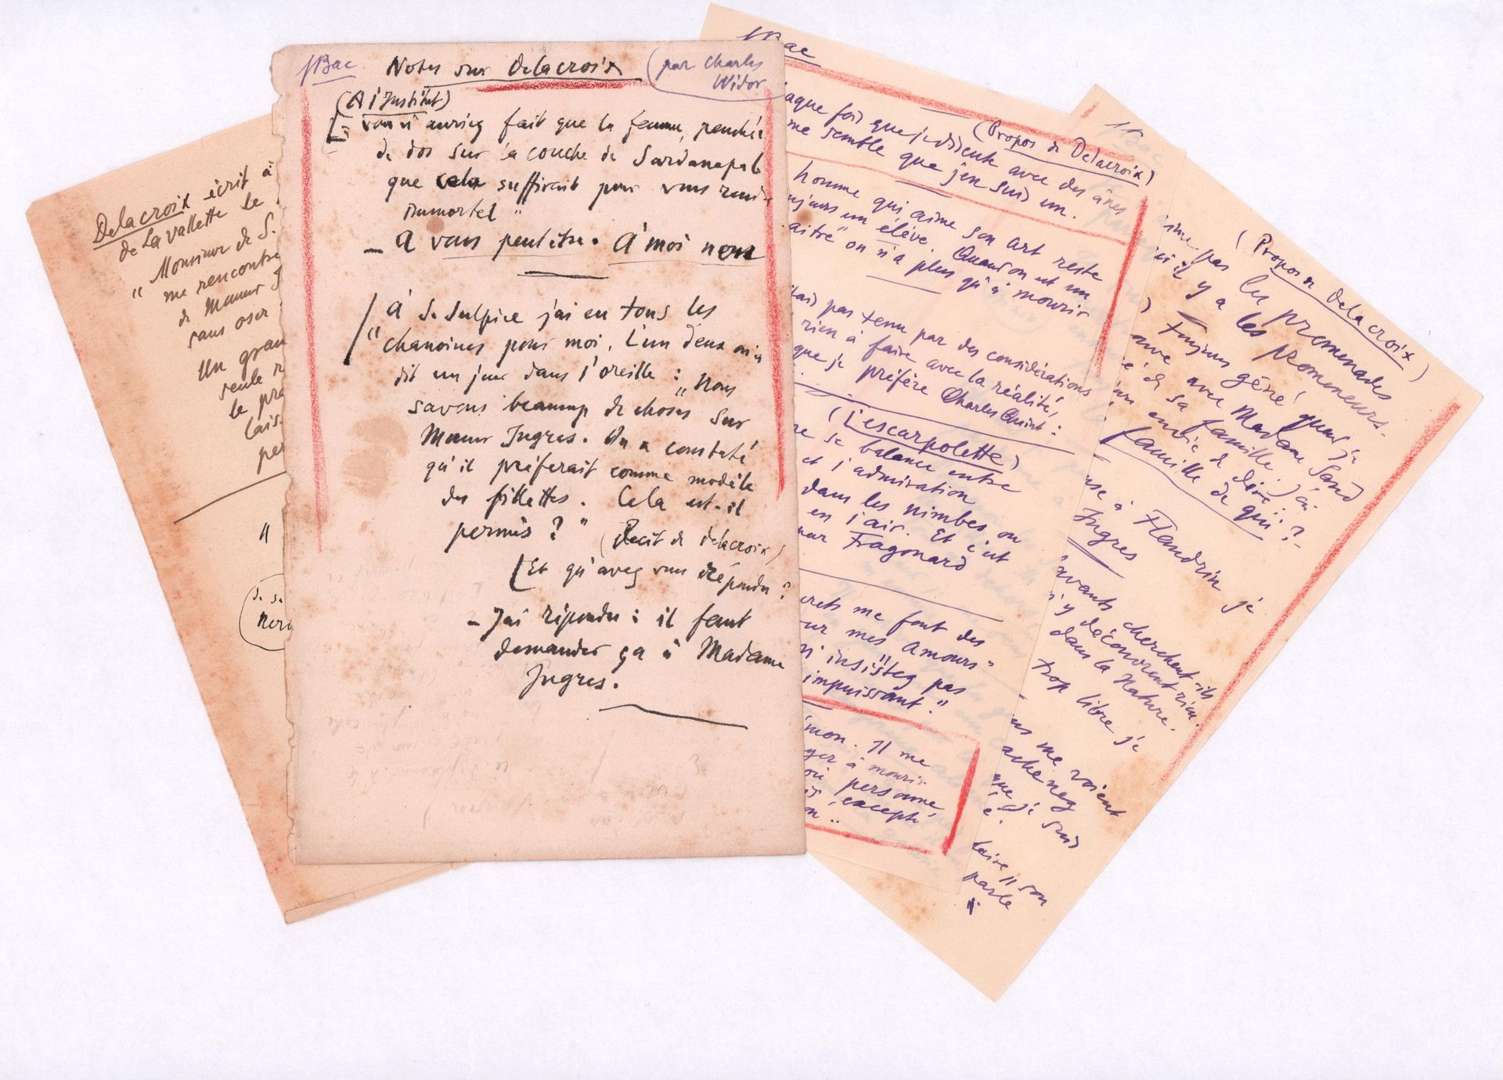 Delacroix écrit à
de La Vallette le
"Monsieur de S.
me rencontre
de Manur
sans oser
Un gran
seule
le pr
lais
per
"
JBac Notes sur Delacroix (par Charles
Widor
(A l'Institut)
vous n'auriez fait que la femme, penchée
de dos sur sa couche de Sardanapale
que cela suffirait pour vous rend
immortel"
- A vous peut être. A moi non
A S. Sulpice j'ai eu tous les
"chanoines pour moi. L'un d'eux m'a
dit un jour dans l'oreille : "Nous
savons beaucoup de choses sur
Mr Ingres. On a constaté
qu'il préferait comme modèle
des fillettes. Cela est-il
permis ?" (Recit de Delacroix)
(Et qu'avez vous répondu ?
- J'ai répondu : il faut
demander ça à Madame
Ingres.
JBac
(Propos de Delacroix)
aque fois que je discute avec des ânes
me semble que j'en suis un.
homme qui aime son art reste
ujours un élève. Quand on est un
aitre" on n'a plus qu'à mourir
pas tenu par des considérations
rien à faire avec la réalité,
que je préfère Charles Quint :
(L'escarpolette)
re se balance entre
et l'admiration
dans les nimbes ou
en l'air. Et c'est
Fragonard
crets me font des
ur mes amours"
n'insistez pas
impuissant."
émon. Il me
ger à mourir
où personne
excepté
on"
(Propos de Delacroix)
aime pas les promenades
il y a les promeneurs.
) Toujours gêné quand je
avec Madame Sand
é de sa famille. J'ai
envie de dire :
famille de qui ?-
à Flandrin je
Ingres
avants cherchent-ils
n'y découvrent rien
dans la Nature.
trop libre je
me voient
achenez
que je suis
é.
laire "son
parle